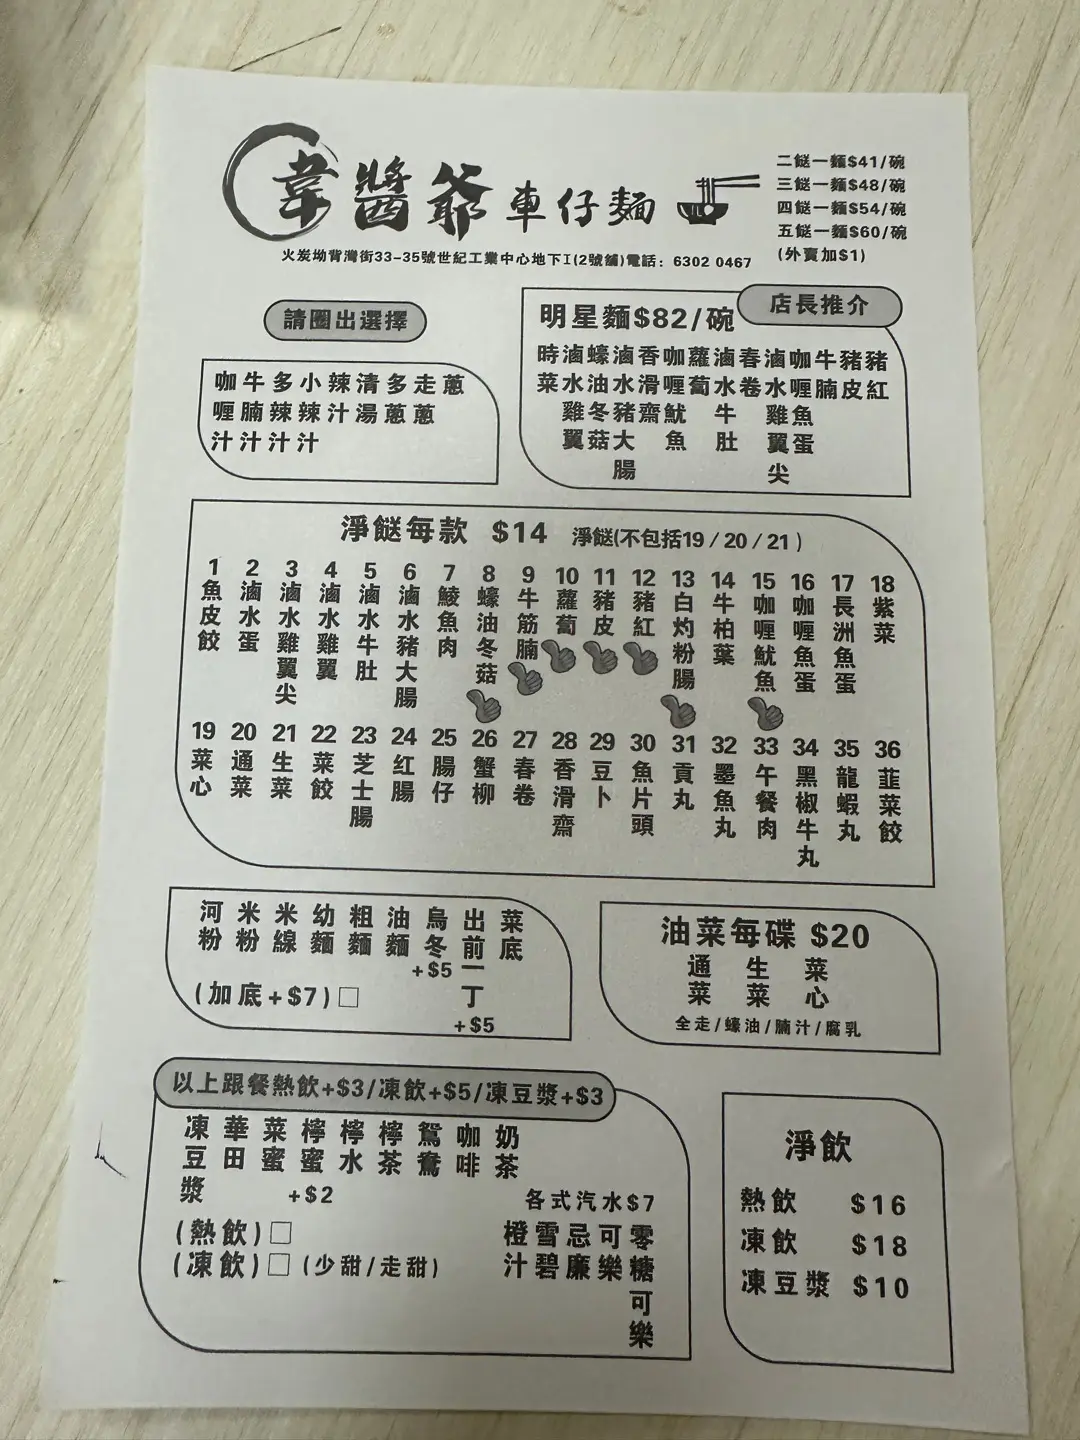 韋醬爺車仔麵
二餸一麵$41/碗
三餸一麵$48/碗
四餸一麵$54/碗
五餸一麵$60/碗
(外賣加$1)
火炭坳背灣街33-35號世紀工業中心地下I(2號舖)電話: 6302 0467
請圈出選擇
咖喱汁
牛腩汁
多辣汁
小辣汁
辣汁
清湯
多蔥
走蔥
蔥
店長推介
明星麵$82/碗
時菜
滷水雞翼
蠔油冬菇
滷水豬大腸
香滑齋
咖喱魷魚
蘿蔔
滷水牛肚
春卷
滷水雞翼尖
咖喱魚蛋
牛腩
豬皮
豬紅
淨餸每款 $14 淨餸(不包括19/20/21)
1 魚皮餃
2 滷水蛋
3 滷水雞翼尖
4 滷水雞翼
5 滷水牛肚
6 滷水豬大腸
7 鯪魚肉
8 蠔油冬菇
9 牛筋腩
10 蘿蔔
11 豬皮
12 豬紅
13 白灼粉腸
14 牛柏葉
15 咖喱魷魚
16 咖喱魚蛋
17 長洲魚蛋
18 紫菜
19 菜心
20 通菜
21 生菜
22 菜餃
23 芝士腸
24 紅腸
25 腸仔
26 蟹柳
27 春卷
28 香滑齋
29 豆卜
30 魚片頭
31 貢丸
32 墨魚丸
33 午餐肉
34 黑椒牛丸
35 龍蝦丸
36 韮菜餃
河粉
米粉
米線
幼麵
粗麵
油麵
烏冬+$5
出前一丁+$5
菜底
(加底+$7)□
油菜每碟 $20
通菜
生菜
菜心
全走/蠔油/腩汁/腐乳
以上跟餐熱飲+$3/凍飲+$5/凍豆漿+$3
凍豆漿
華田
菜蜜
檸蜜
檸水
檸茶
鴛鴦
咖啡
奶茶
+$2
(熱飲)□
(凍飲)□ (少甜/走甜)
各式汽水$7
橙汁
雪碧
忌廉
可樂
零糖可樂
淨飲
熱飲 $16
凍飲 $18
凍豆漿 $10